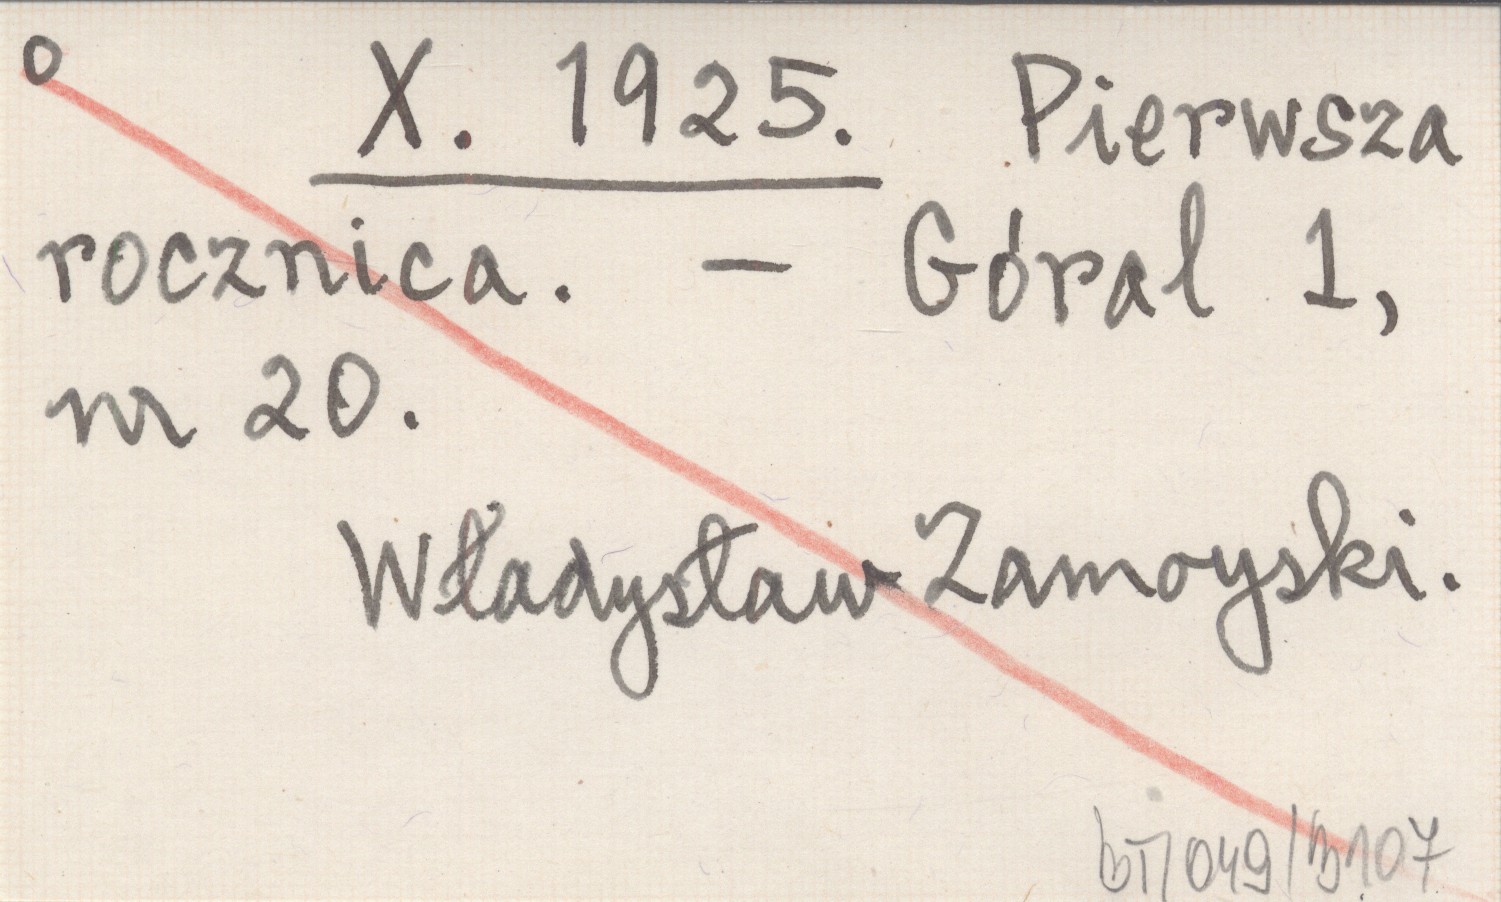 o X. 1925. Pierwsza
rocznica. – Góral 1,
nr 20.
Władysław Zamoyski.
049/